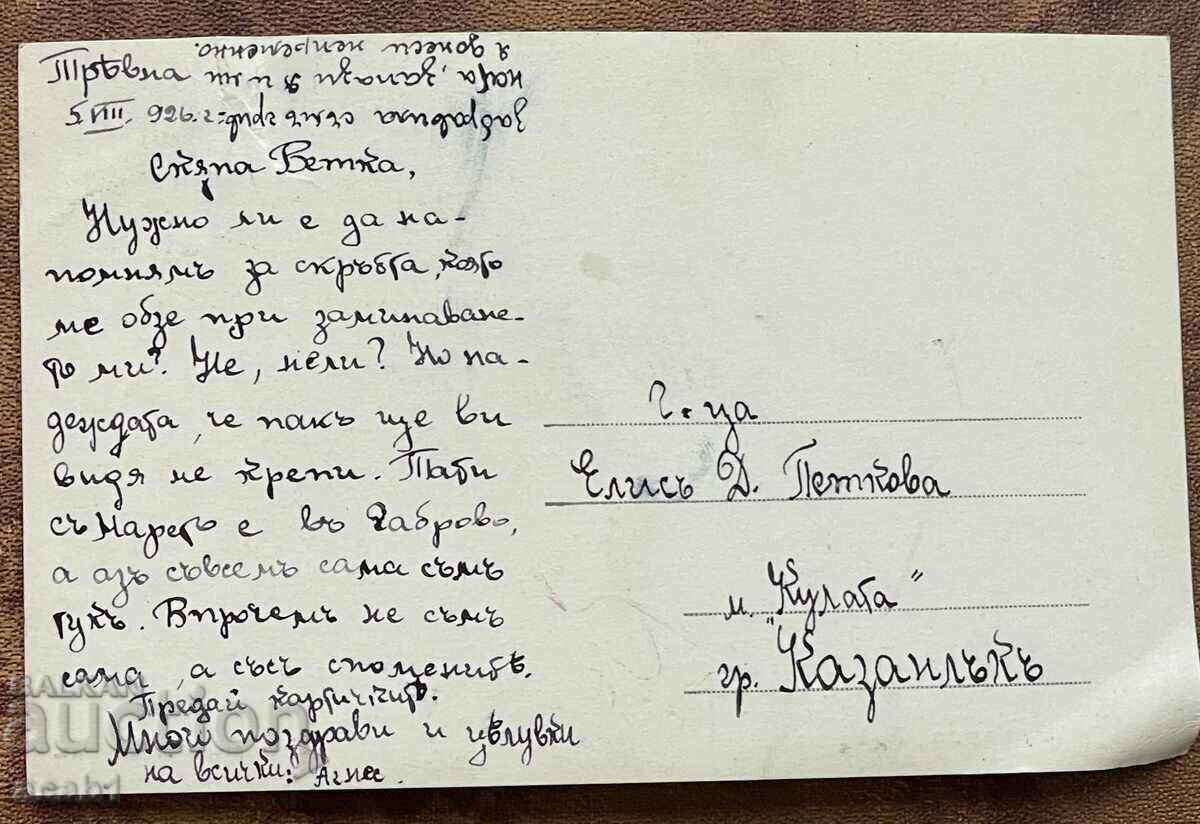 Трѣвна
5 VIII. 926. г.
Скѫпа Ветка,
Нужно ли е да на-
помнямъ за скръбта, която
ме обзе при заминаване-
то ми? Не, нели? Но на-
деждата, че пакъ ще ви
видя ме крепи. Тати
съ Марето е въ Габрово,
а азъ съвсемъ сама съмъ
тукъ. Впрочемъ не съмъ
сама, а съсъ споменитѣ.
Предай картичкитѣ.
Много поздрави и цѣлувки
на всички: Агнес.
Забравила съмъ
запази я и ми
я донеси непременно.
Г-ца
Елисъ Д. Петкова
м. "Кулата"
гр. Казанлъкъ
BALKAN
auction
acab1